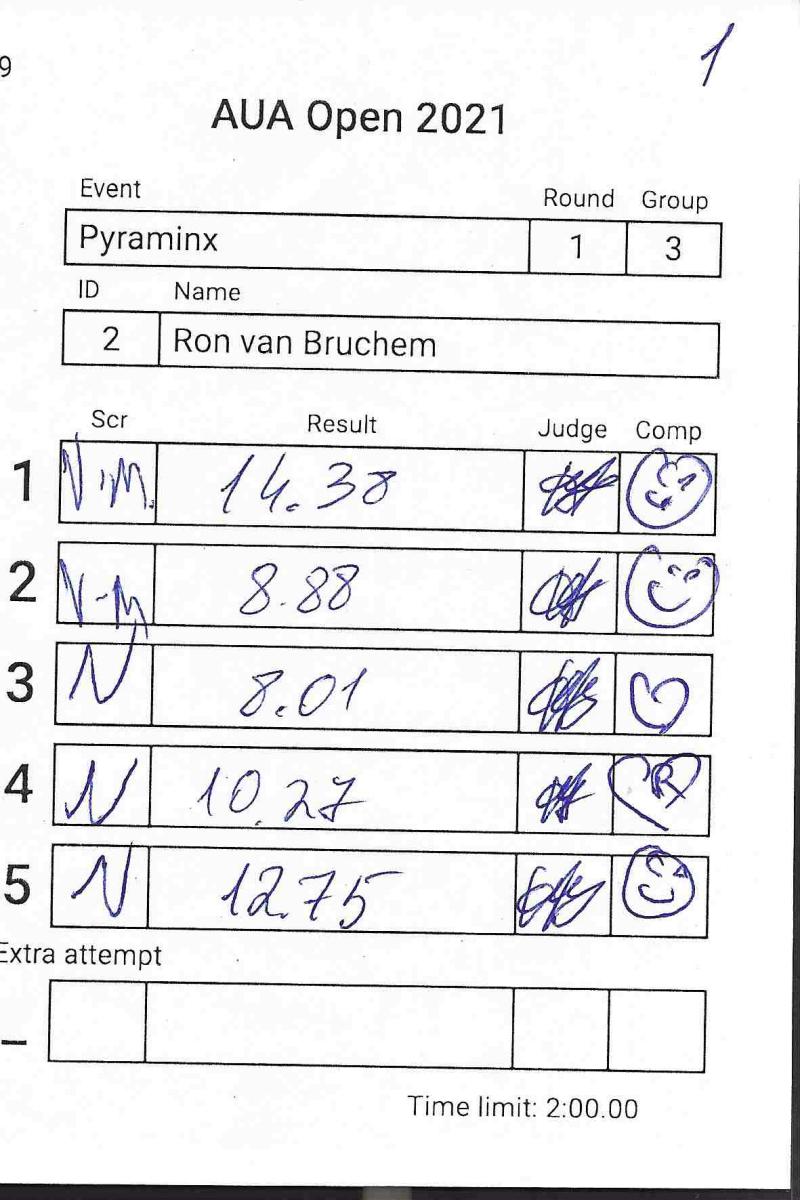 9
1
AUA Open 2021
Event Round Group
Pyraminx 1 3
ID Name
2 Ron van Bruchem
Scr Result Judge Comp
1 V.M. 14.38
2 V-M 8.88
3 N 8.01
4 N 10.27 R
5 N 12.75
Extra attempt
_
Time limit: 2:00.00